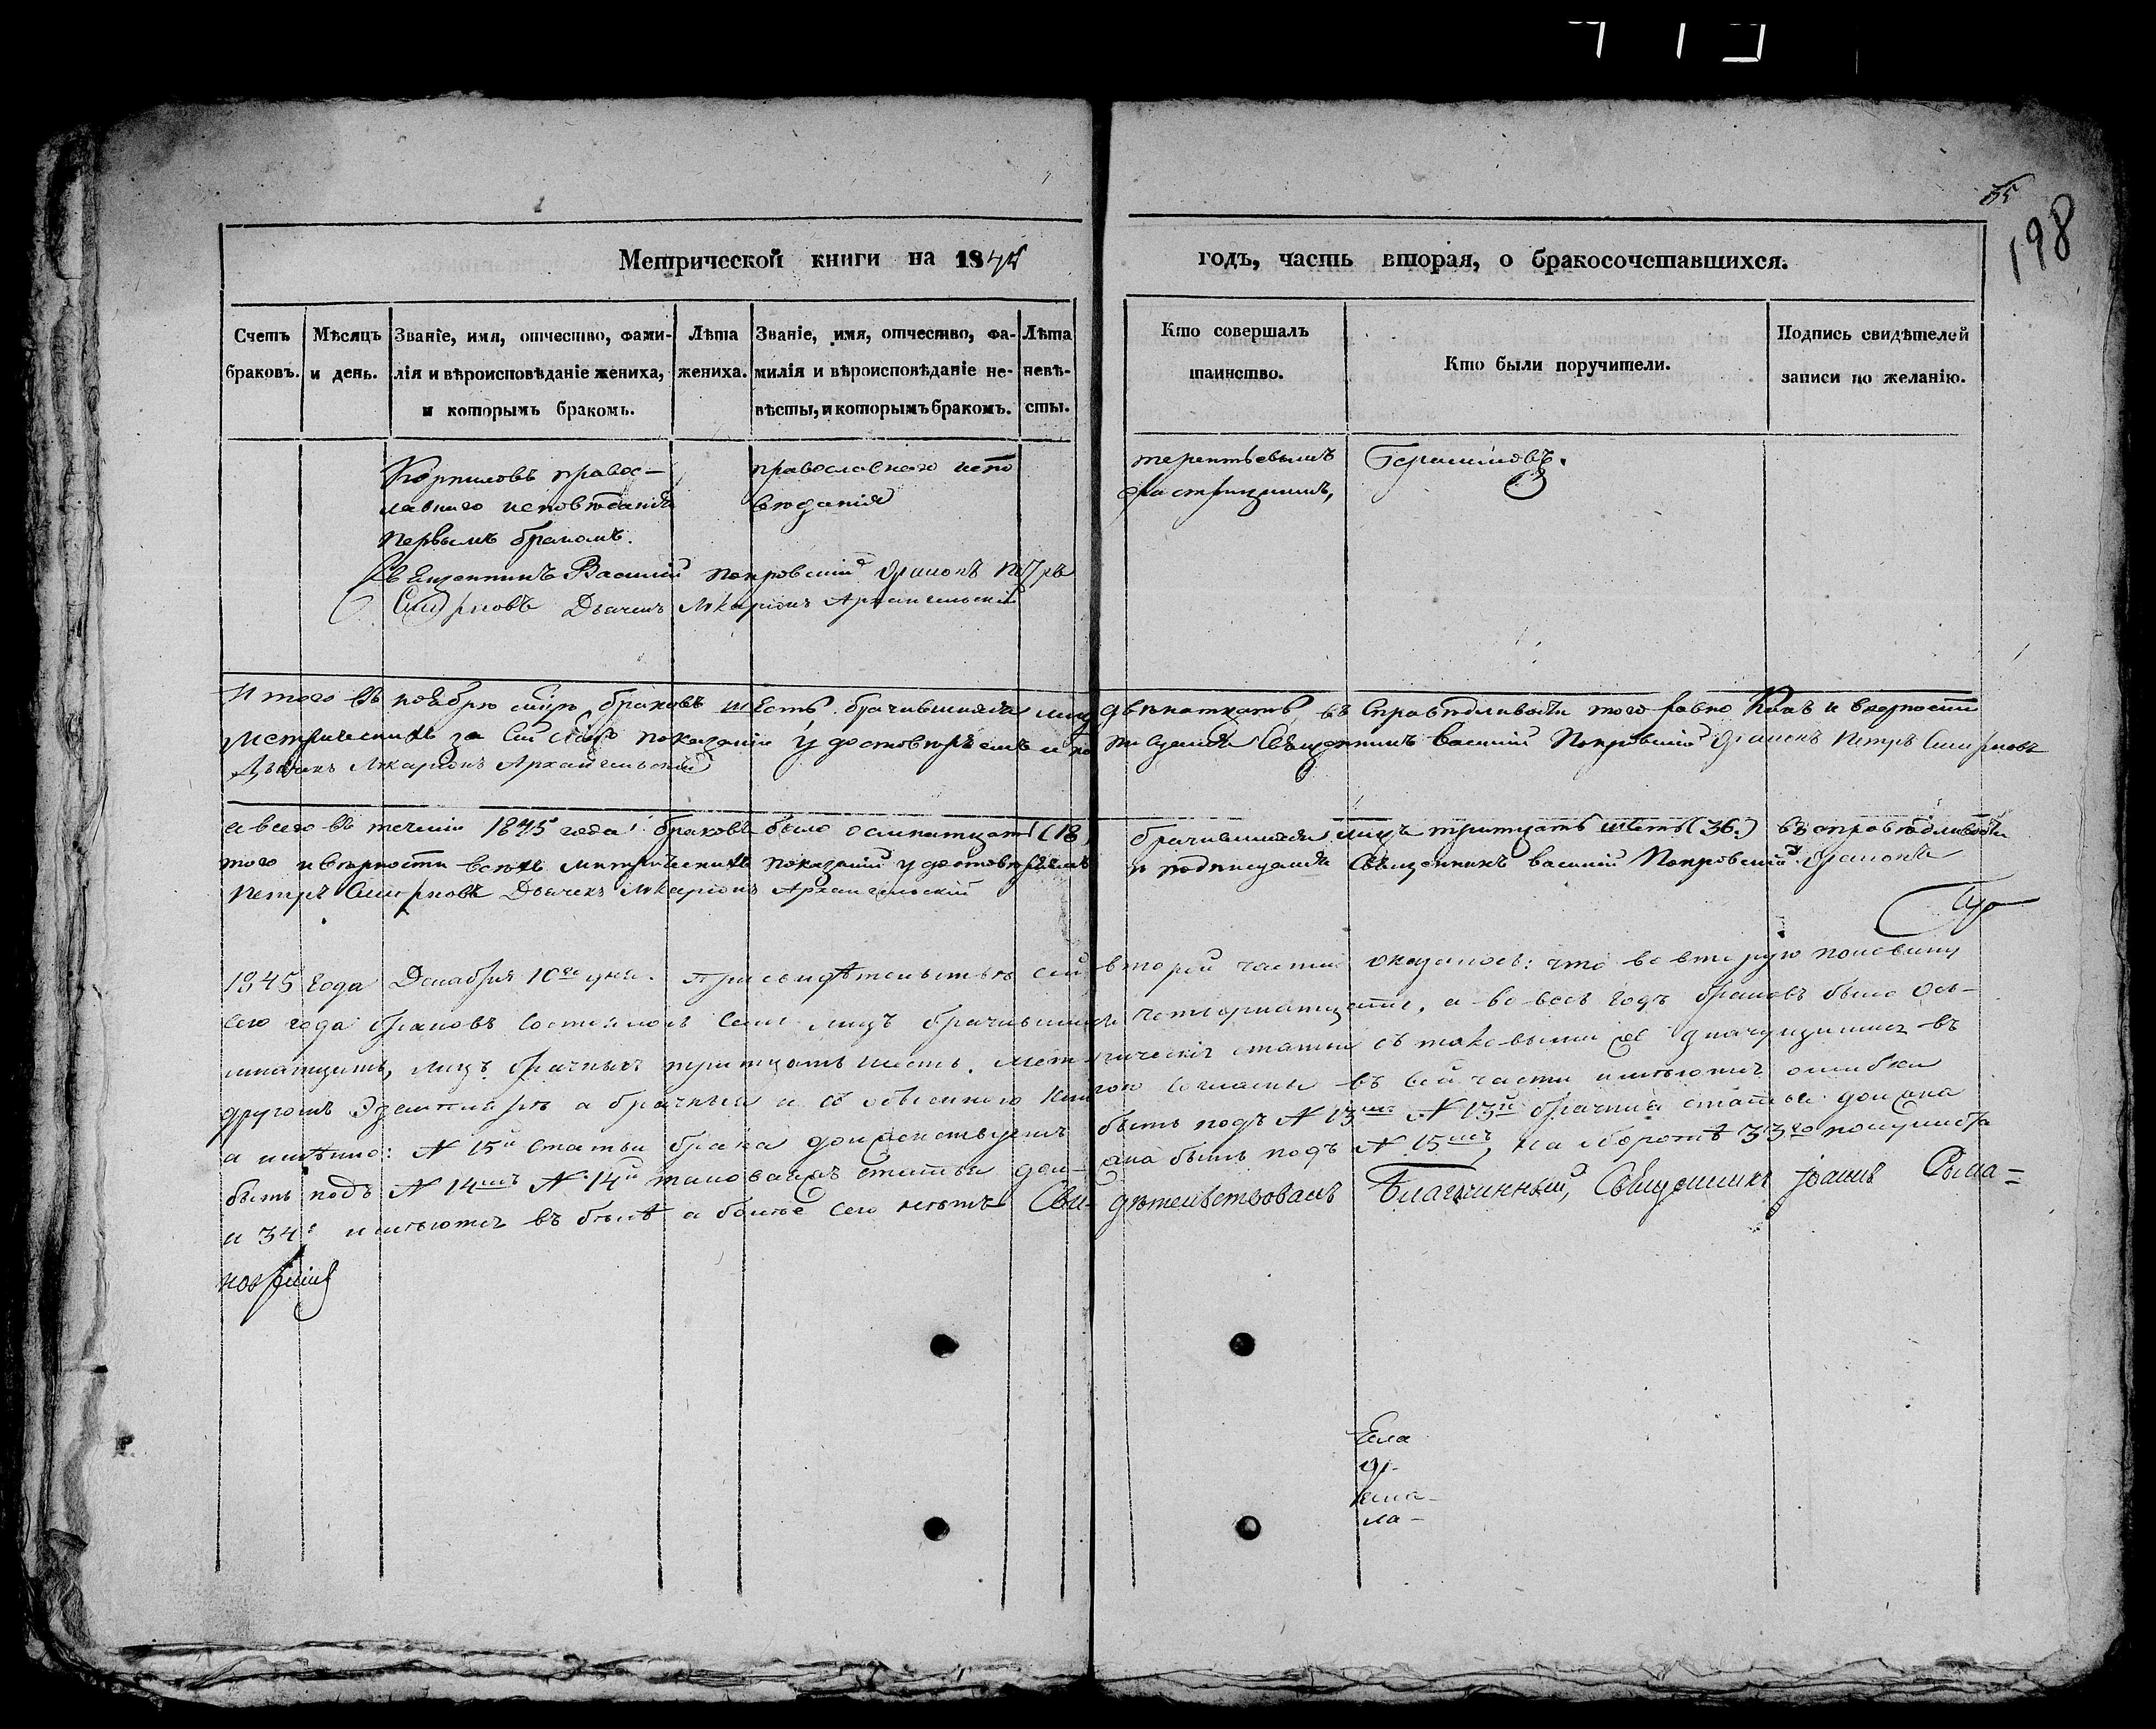 35
198
Метрической книги на 1845 годъ, часть вторая, о бракосочетавшихся.
Счетъ браковъ.
Мѣсяцъ и день.
Званіе, имя, отчество, фами-
лія и вѣроисповѣданіе жениха,
и которымъ бракомъ.
Лѣта жениха.
Званіе, имя, отчество, фа-
милія и вѣроисповѣданіе не-
вѣсты, и которымъ бракомъ.
Лѣта невѣ-
сты.
Кто совершалъ
таинство.
Кто были поручители.
Подпись свидѣтелей
записи по желанію.
Корниловъ правос-
лавнаго исповѣданія
первымъ бракомъ.
православнаго испо
вѣданія
Герасимовъ.
Священникъ Василій Покровскій Діаконъ Петръ
Смирновъ Дьячекъ Иларіонъ Архангельскій
Итого въ ноябрѣ браковъ шесть, брачившихся лицъ двѣнатцать, въ справедливости того равно какъ и верности
метрическихъ за сей показаній удостовѣряемъ и подписуемся Священникъ Василій Покровскій Діаконъ Петръ Смирновъ
Дьячекъ Иларіонъ Архангельскій
а всего въ теченіи 1845 года браковъ было осмнатцать (18) брачившихся лицъ тритцать шесть (36.) въ справедливости
того и верности всехъ метрическихъ показаній удостовѣряемъ и подписуемся Священникъ Василій Покровскій Діаконъ
Петръ Смирновъ Дьячекъ Иларіонъ Архангельскій
1845 года Декабря 10го дня. При свидѣтельствѣ сей второй части оказалось: что во вторую половину
сего года браковъ состоялось семь лицъ брачившихся четырнатцать, а во весь годъ браковъ было ось-
мнатцать, лицъ брачныхъ тритцать шесть. Метрическія статьи съ таковыми же значущимися въ
другомъ Экземплярѣ а брачныя и съ обыскною книгою согласны въ сей части имѣются ошибки
а имѣнно: N 15й статьи брака долженствуетъ быть подъ N 13мъ N 13й брачная статья должна
быть подъ N 14мъ N 14й таковая статья должна быть подъ N 15мъ, на оборотѣ 33го полулиста
и 34й имѣются въ белѣ а болѣе сего нѣтъ Сви-дѣтельствовалъ Благочинный, Священникъ Іоаннъ